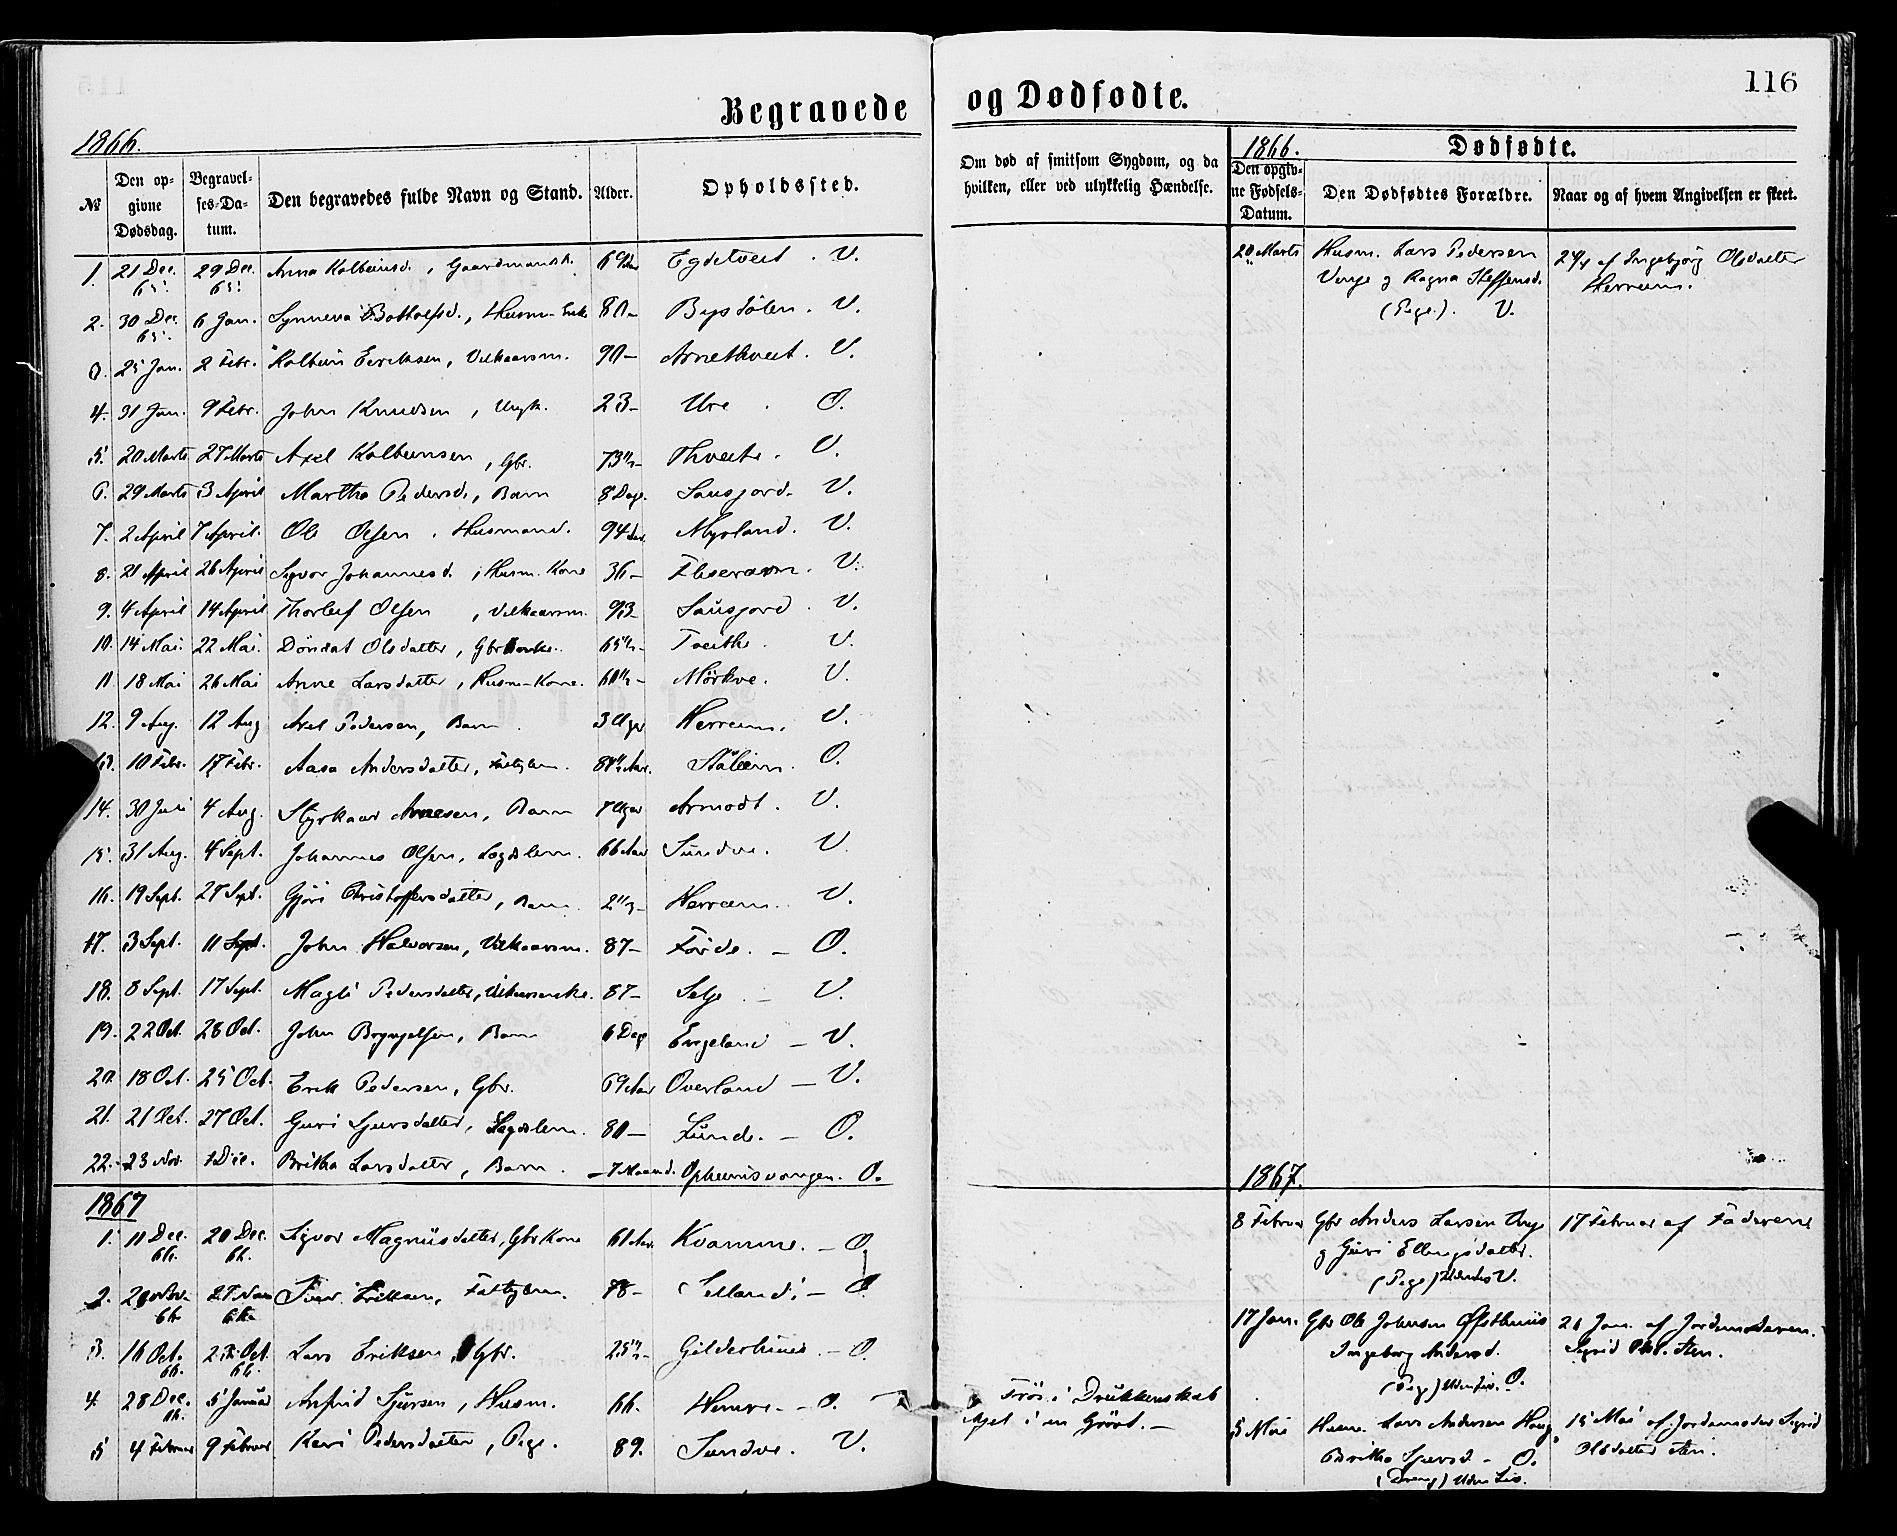 116
Begravede og Dødfødte.
1866.
№
Den opgivne Dødsdag.
Begravelses-Datum.
Den begravedes fulde Navn og Stand.
Alder.
Opholdssted.
Om død af smitsom Sygdom, og da hvilken, eller ved ulykkelig Hændelse.
1866.
Dødfødte.
Den opgivne Fødsels-Datum.
Den Dødfødtes Forældre.
Naar og af hvem Angivelsen er skeet.
1. 21 Dec. 65. 29 Dec. 65. Anna Kolbeinsd., Egdetveit. V.
2. 30 Dec. 65. 6 Jan. Synneva Botholfsd., Husm-Enke 80- Bysdölen. V.
3. 25 Jan. 2 Febr. Kolbein Eeriksen, Vilkaarsm. 90- Arnethveit. V.
4. 31 Jan. 9 Febr. John Knudsen, Ungk. 23- Ure. O.
5. 20 Marts 27 Marts Axel Kolbeinsen, Gbr. 73½- Thveite.
6. 29 Marts 3 April Martha Pedersd., Barn 8 Dage. Sausjord. V.
7. 2 April 7 April. Ole Olsen, Husmand. 94 Aar. Myrland. V.
8. 21 April 26 April Johannesd., Husm. Kone 36- V.
9. 4 April 14 April Thorleif Olsen, Vilkaarsm. 93 Sausjord. V.
10. 14 Mai. 22 Mai. Döndat Olsdatter, 65½- Tveithe. V.
11. 18 Mai 26 Mai Anne Larsdatter, Husm-Kone. 60½- Mörkve. V.
12. 9 Aug. 12 Aug Axel Pedersen, Barn 3 Uger Herreim. V.
13. 10 Febr. 17 Febr. Aasa Andersdatter, Aar. O.
14. 30 Juli 4 Aug. Styrkaar Arnesen, Barn 7 Uger Armodt. V.
15. 31 Aug. 4 Sept. Johannes Olsen, Lægdslem. 66 Aar Sundve. V.
16. 19 Sept. 27 Sept. Gjöri Christoffersdatter, Barn 2½- Herreim. V.
17. 3 Sept. 11 Sept. John Halvorsen, Vilkaarsm. 87- Förde. - O.
18. 8 Sept. 17 Sept. Magli Pedersdatter, 87- Selje. - V.
19. 22 Oct. 28 Oct. John Brynjelsen, Barn 6 Dage Evgeland - V.
20. 18 Oct. 25 Oct. Erik Pedersen, Gbr. 69 Aar Överland - V.
21. 21 Oct. 27 Oct. Guri Sjursdatter, Lægdslem. 80- Lunde. - O.
22. 23 Nov. 1 Dec. Britha Larsdatter, Barn. - 7 Maand. Opheimsvangen. O.
20 Marts Husm. Lars Pedersen
Vinje og Ragna Steffensd.
(Pige). V.
24/4 af Ingebjörg Olsdatter
Herreim.
1867
1. 11 Dec. 66. 20 Dec. 66. Sigvor Magnusdatter, Gbr Kone 61 Aar. Kvamme. - O.
2. Nov. 66 27 Nov 66 Eriksen, 78- O.
3. 16 Oct. 66. Oct. 66. Lars Eriksen, Gbr. 25½- Gilderhuus. - O.
4. 28 Dec. 66. 5 Januar Anfind Sjursen, Husm. 66. Hemre. - O.
Frös i Drukkenskab
i en Grövt. -
5 4 Februar 9 Februar Kari Pedersdatter, Pige. 89. Sundve. V.
1867.
8 Februar Gbr Anders Larsen
og Guri Ellingsdatter.
(Pige) V.
17 Februar af Faderen
17 Jan. Gbr Ole Johnsen Öfsthuus
Ingeborg Andersd.
(Pige) uden Liv. O.
26 Jan. af Jordemoderen
Sigrid
5 Mai Husm. Lars Andersen Haug
Britha Sjursd - O.
(Dreng) uden Liv.
15 Mai af Jordemoder Sigrid
Olsdatter